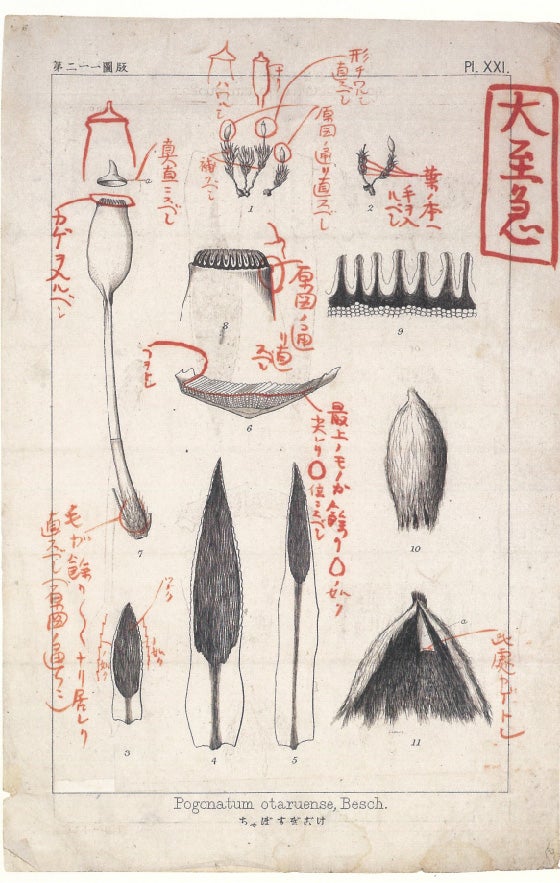 第二一一圖版
Pl. XXI.
大至急
形チワルシ
直スベシ
原図ノ通リ直スベシ
ハワルシ
補スベシ
真直ニスベシ
葉ノ本ヘ
手ヲ入
ルベシ
カゲヲ入ルベシ
原図ノ通
リ直
スベシ
最上ノモノガ餘リ
尖レリ
位ニスベシ
毛ガ餘リ
ナリ居レリ
直スベシ(原図ノ通リニ)
此處
a
1
2
8
9
6
7
10
3
4
5
a
11
Pogonatum otaruense, Besch.
ちゃぼすぎごけ